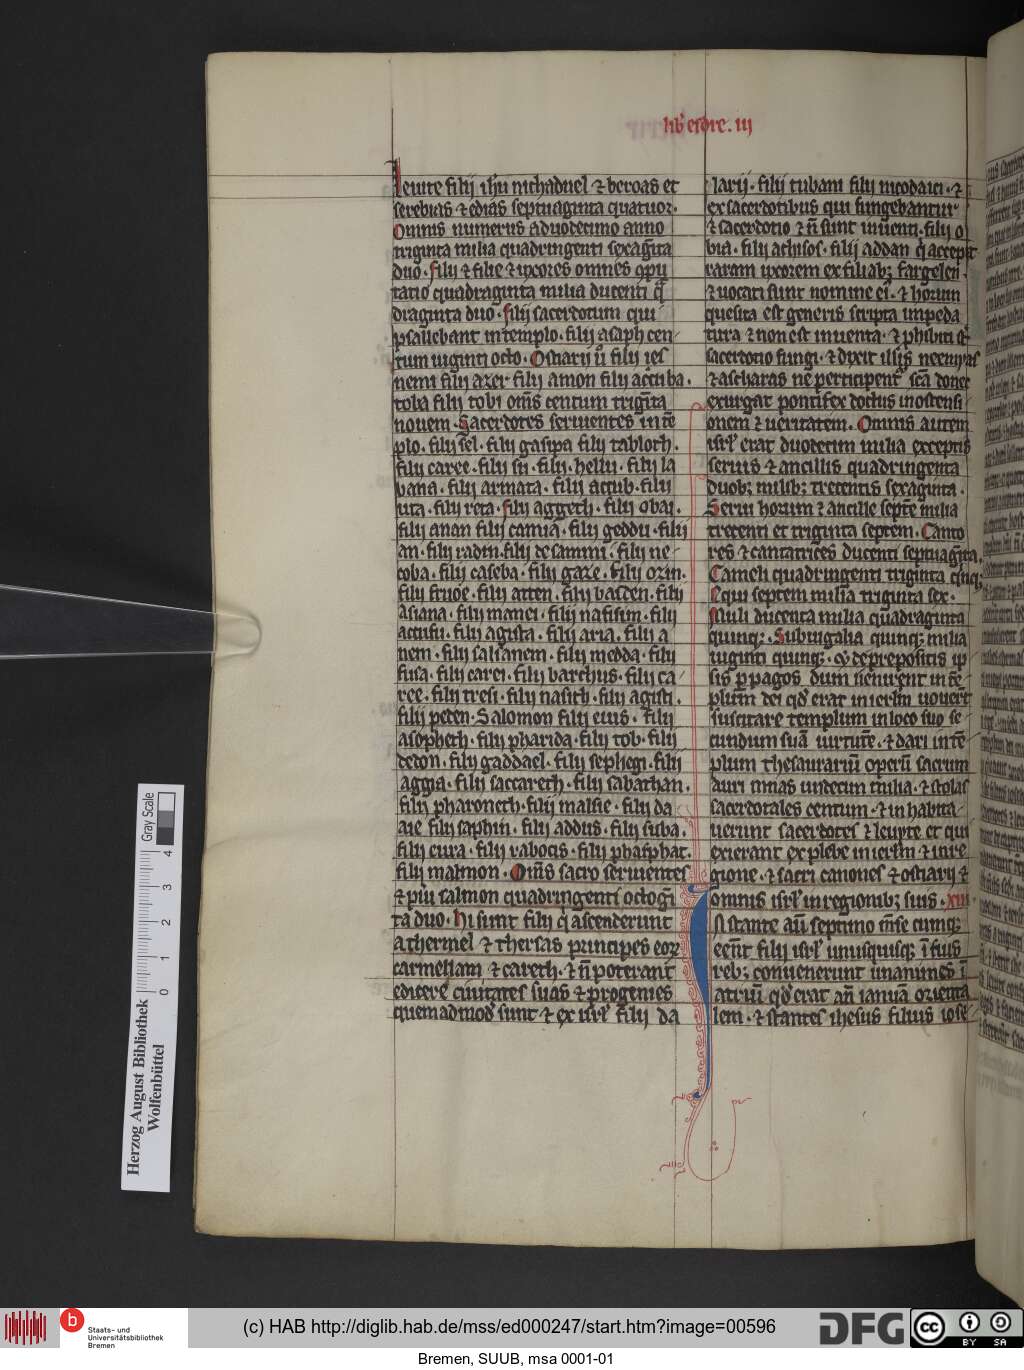 lib' esdre . iij
Leuite filij ih̄u nichaduel ⁊ beroas et
serebias ⁊ edias septuaginta quatuor.
Omnis numerus a duodecimo anno
triginta milia quadringenti sexag̃ta
duo . filij ⁊ filie ⁊ uxores omnes ꝯpu
tatio quadraginta milia ducenti q̃
draginta duo . filij sacerdotum qui
psallebant in templo . filij asaph cen
tum uiginti octo . Ostiarij ů filij ies
nemi filij azer filij amon filij accuba .
toba filij tobi om̄s centum trig̃ta
nouem . Sacerdotes seruientes in tē
plo . filij sel . filij gasipa filij tabloth .
filij caree . filij sij . filij . hellu . filij la
bana . filij armata . filij accub . filij
uta . filij reta . filij aggeth . filij obai .
filij anan filij camia . filij geddu . filij
an . filij radin . filij desammi . filij ne
coba . filij caseba . filij gaze . filij ozin .
filij fruoe . filij atten . filij basten . filij
asiana . filij manei . filij nasisim . filij
accusu . filij agista . filij aria . filij a
nem . filij saluanem . filij medda . filij
fusa . filij carei . filij barchus . filij ca
ree . filij tresi . filij nasith . filij agisti .
filij peten . Salomon filij eius . filij
asopheth . filij pharida . filij tob . filij
dedon . filij gaddael . filij sephegi . filij
aggia . filij saccareth . filij sabathan .
filij pharoneth . filij malsie . filij da
aie filij saphin . filij addus . filij suba .
filij eura . filij rabotis . filij phasphat .
filij malmon . Om̄s sacro seruientes
⁊ pĩu salmon quadringenti octog̃i
ta duo . hi sunt filij q̃ ascenderunt
a thermel ⁊ thersas principes eoꝝ
carmellam ⁊ careth . ⁊ ñ poterant
edicere ciuitates suas ⁊ progenies
quemadmod' sunt ⁊ ex isrl' filij da
larij . filij tubam filij nicodaici . ⁊
ex sacerdotibus qui fungebantur
⁊ sacerdotio ⁊ ñ sunt inuenti . filij o
bia . filij achisos . filij addan q̃ accepit
uxorem ex filiab; fargeleu .
⁊ uocati sunt nomine ei' . ⁊ horum
quesita est generis scripta in peda
tura ⁊ non est inuenta . ⁊ ꝓhibiti st̃
sacerdotio fungi . ⁊ dixit illis neemyas
⁊ astharas ne perticipent' sc̄a donec
exurgat pontifex doctus in ostensi
onem ⁊ ueritatem . Omnis autem
isrl' erat duodecim milia exceptis
seruis ⁊ ancillis quadringenta
duob; milib; trecentis sexaginta .
Serui horum ⁊ ancille septē milia
trecenti et triginta septem . Canto
res ⁊ cantatrices ducenti septuag̃ta .
Cameli quadringenti triginta q̃nq;
Equi septem milia triginta sex .
Muli ducenta milia quadraginta
quinq; . Subiugalia quinq; milia
uiginti quinq; . ⁊ de prepositis ip
sis ꝑ pagos dum uenirent in tē
plum dei qd' erat in ierl̄m uouer̄t
suscitare templum in loco suo se
cundum suā uirtutē . ⁊ dari in tē
plum thesaurariū operū sacrum
auri mnas undecim milia . ⁊ stolas
sacerdotales centum . ⁊ in habita
uerunt sacerdotes ⁊ leuyte et qui
exierant ex plebe in ierl̄m ⁊ in re
gione . ⁊ sacri canones ⁊ ostiarij ⁊
omnis isrl' in regionib; suis . xiii
Istante aū septimo m̄se cumq;
eēnt filij isrl' unusquisq; ī suis
reb; conuenerunt unanimes ī
atriū qd' erat añ ianuā orienta
lem . ⁊ stantes ihesus filius iose
Gray Scale
0 1 2 3 4
Herzog August Bibliothek
Wolfenbüttel
b
Staats- und
Universitätsbibliothek
Bremen
(c) HAB http://diglib.hab.de/mss/ed000247/start.htm?image=00596
DFG
cc
BY SA
Bremen, SUUB, msa 0001-01